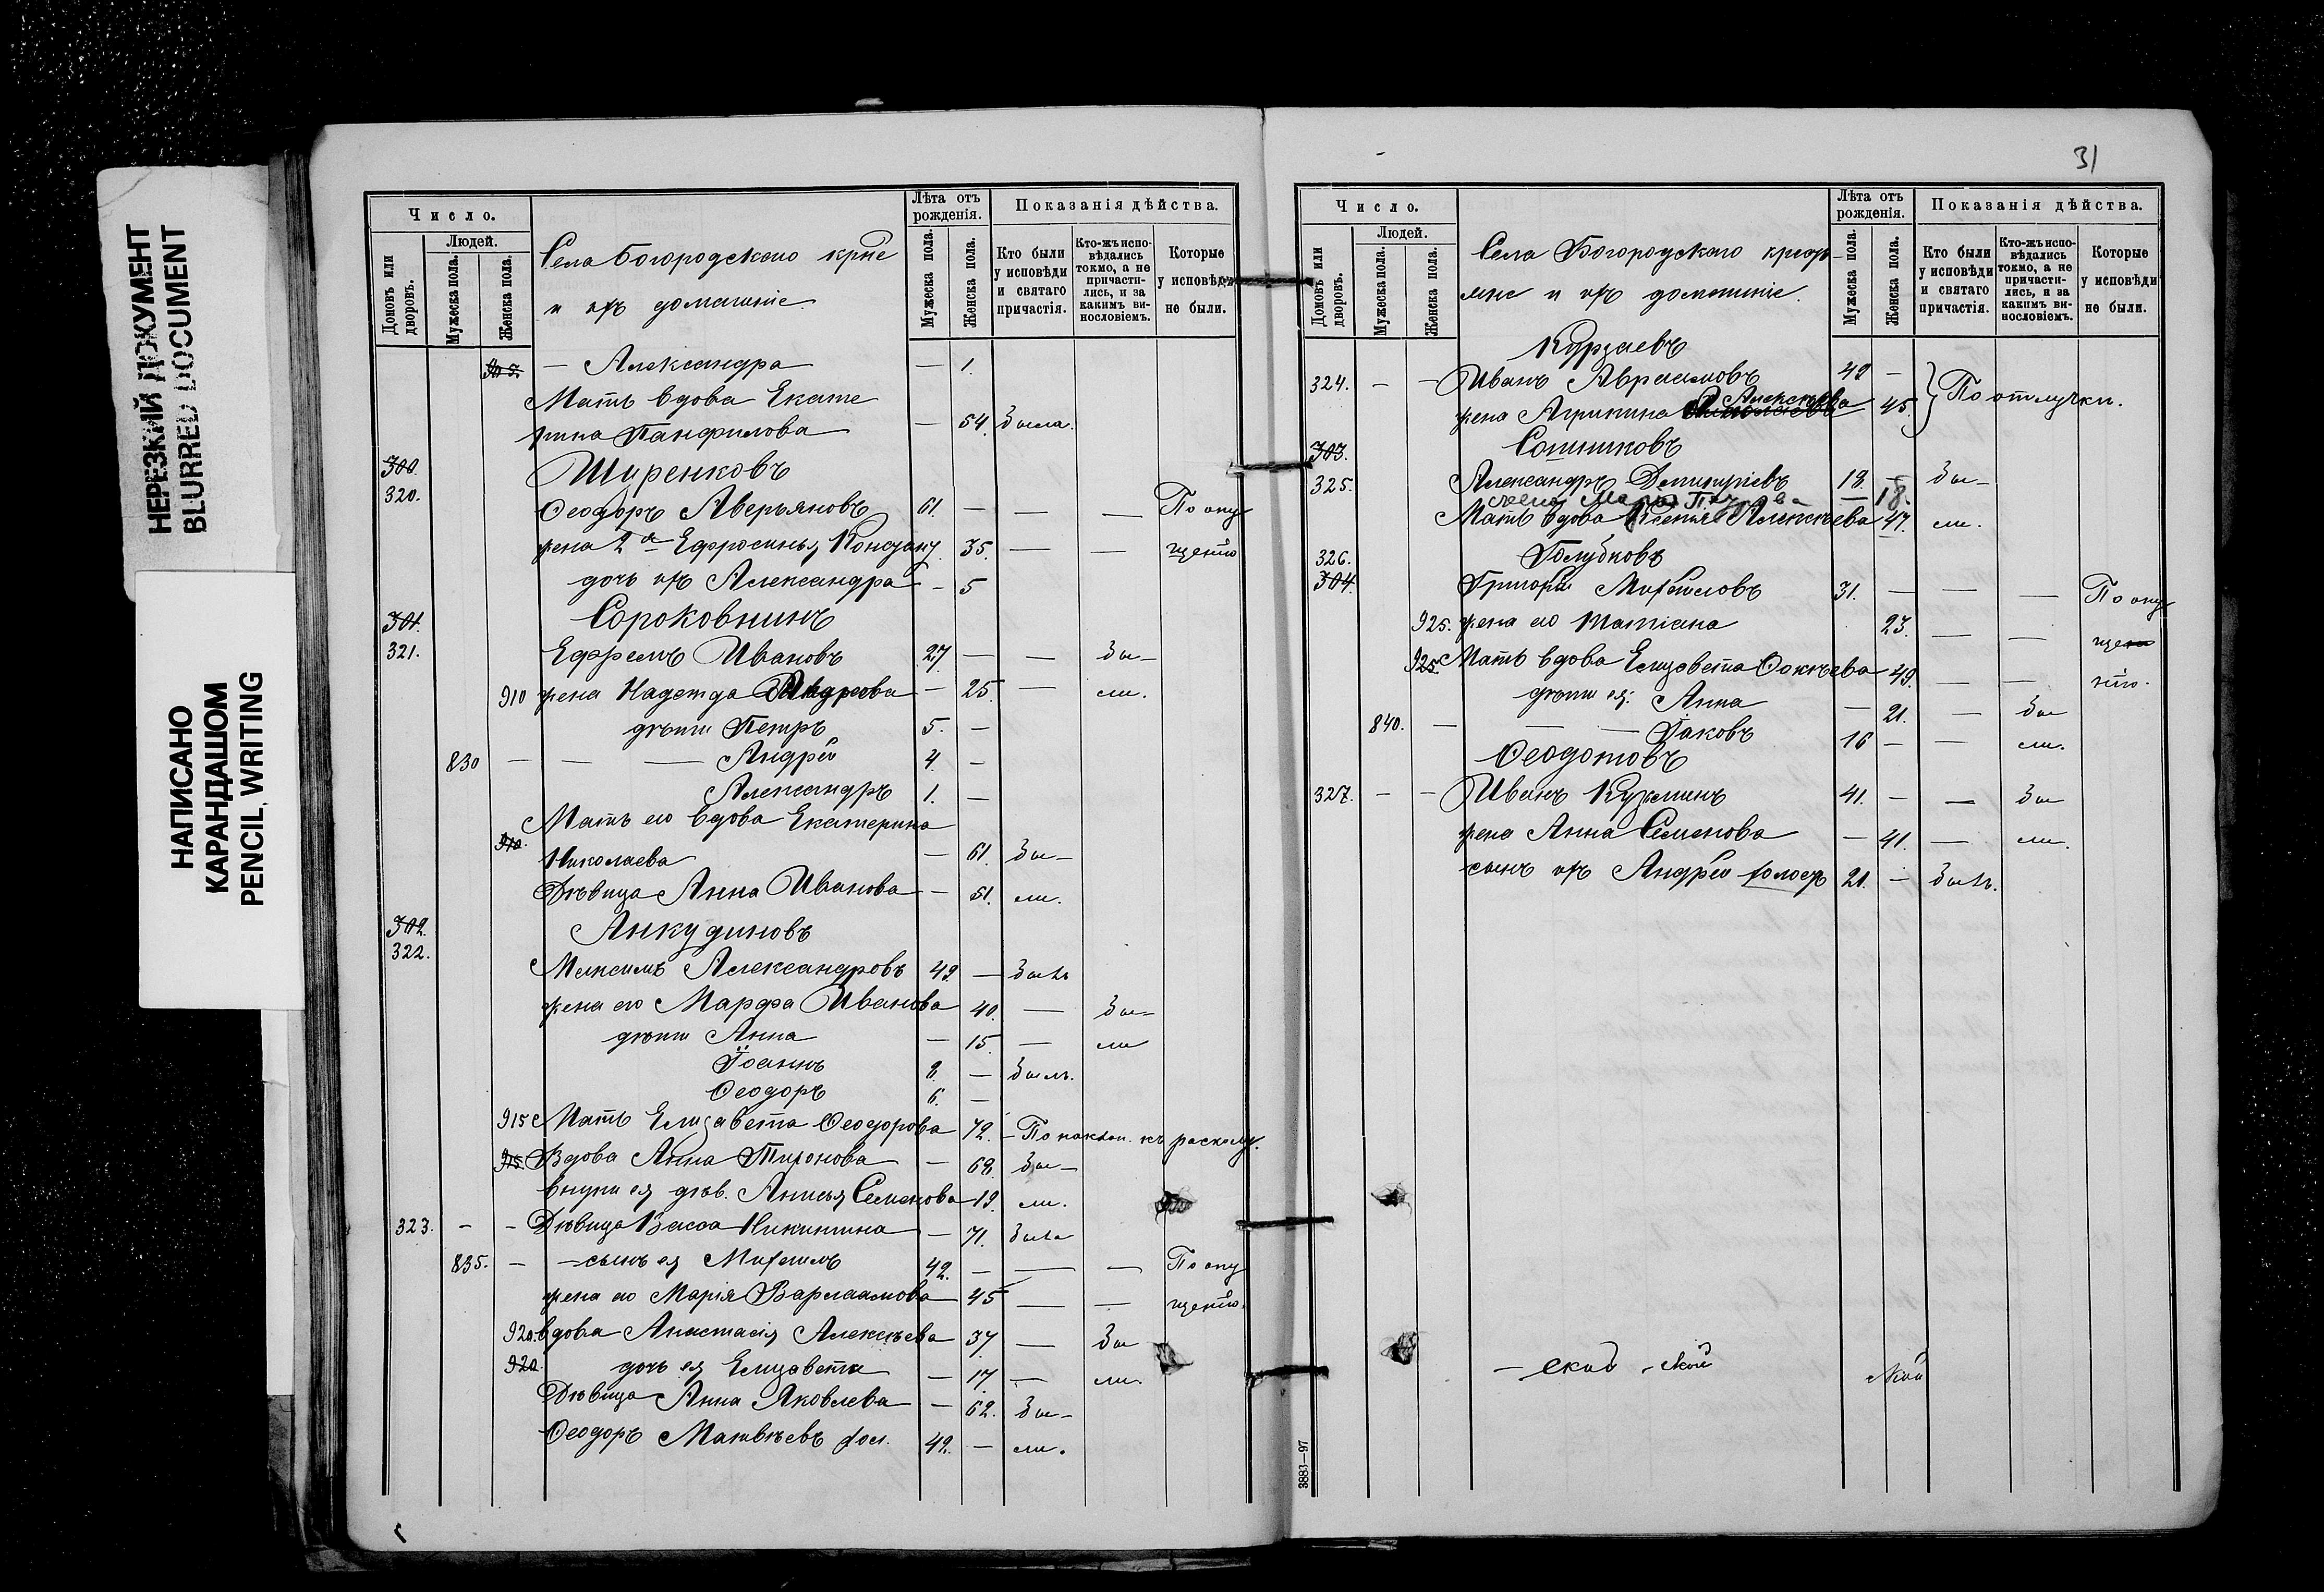 НЕРЕЗКИЙ ДОКУМЕНТ
BLURRED DOCUMENT
НАПИСАНО
КАРАНДАШОМ
PENCIL WRITING
Число.
Людей.
Домовъ или дворовъ.
Мужеска пола.
Женска пола.
Села Богородскаго крне
и ихъ домашніе.
Лѣта отъ рожденія.
Мужеска пола.
Женска пола.
Показанія дѣйства.
Кто были у исповѣди и святаго причастія.
Кто-жъ испо-вѣдались токмо, а не причасти-лись, и за какимъ ви-нословіемъ.
Которые у исповѣди не были.
— Александра — 1.
Мать вдова Екате
рина Панфилова — 54. была.
300.
Ширенковъ
320. Ѳеодоръ Аверьяновъ 61. — — — По опу
жена 2я Ефросинья 35. — — щенію
дочь ихъ Александра — 5
301. Сороковнинъ
321. Ефремъ Ивановъ 27 — — бы—
910 жена Надежда Андреева — 25 — ли.
дѣти Петръ 5. —
830 — — — Андрей 4. —
Александръ 1. —
Мать его вдова Екатерина
910. Николаева — 61. бы—
Дѣвица Анна Иванова — 51. ли.
302. Анкудиновъ
322. Максимъ Александровъ 49. — былъ
жена его Марѳа Иванова 40. — бы—
дѣти Анна — 15. — ли
Іоаннъ 8. — былъ.
Ѳеодоръ 6. —
915 Мать Елизавета Ѳеодорова 72. — По наклон. къ расколу.
915. Вдова Анна Тихонова — 68. бы—
внучка ея дѣв. Анисья Семенова 19. ли.
323. — — Дѣвица Васса Никитина — 71. была
835. — — сынъ ея Михаилъ 42. — — — По опу
жена его Марія Варлаамова 45 — — щенію.
920. вдова Анастасія Алексѣева 37 — бы
920. дочь ея Елизавета — 17. — ли.
Дѣвица Анна Яковлева — 62. бы—
Ѳеодоръ Матвѣевъ хол. 42. — ли.
31
Число.
Людей.
Домовъ или дворовъ.
Мужеска пола.
Женска пола.
Села Богородскаго кресть—
яне и ихъ домашніе.
Лѣта отъ рожденія.
Мужеска пола.
Женска пола.
Показанія дѣйства.
Кто были у исповѣди и святаго причастія.
Кто-жъ испо-вѣдались токмо, а не причасти-лись, и за какимъ ви-нословіемъ.
Которые у исповѣди не были.
Курзаевъ
324. — — Иванъ Авраамовъ 49 —
Алексѣева
жена Агрипина 45. } По отлучки.
303. Сотниковъ
325. Александръ Димитріевъ 19. — бы—
жена Марья — 18.
Мать вдова Ксенья Алексѣева 47. ли.
326. Голубковъ
304. Григорій Михайловъ 31. — — — По опу
925. жена его Татіана 23. — — ще
925. Мать вдова Елизавета Ѳокѣева 49. — — нію.
дѣти ея: Анна — 21. — бы
840. — — — Іаковъ 16 — — ли.
Ѳеодотовъ
327. — — Иванъ Кузьминъ 41. — — бы
жена Анна Семенова — 41. — ли.
сынъ ихъ Андрей холостъ 21. — былъ.
3883—97